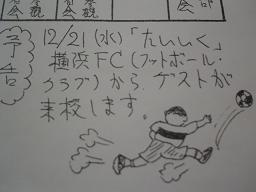 予告
12/21(水)「たいいく」
横浜FC(フットボール・
クラブ)から、ゲストが
来校します。